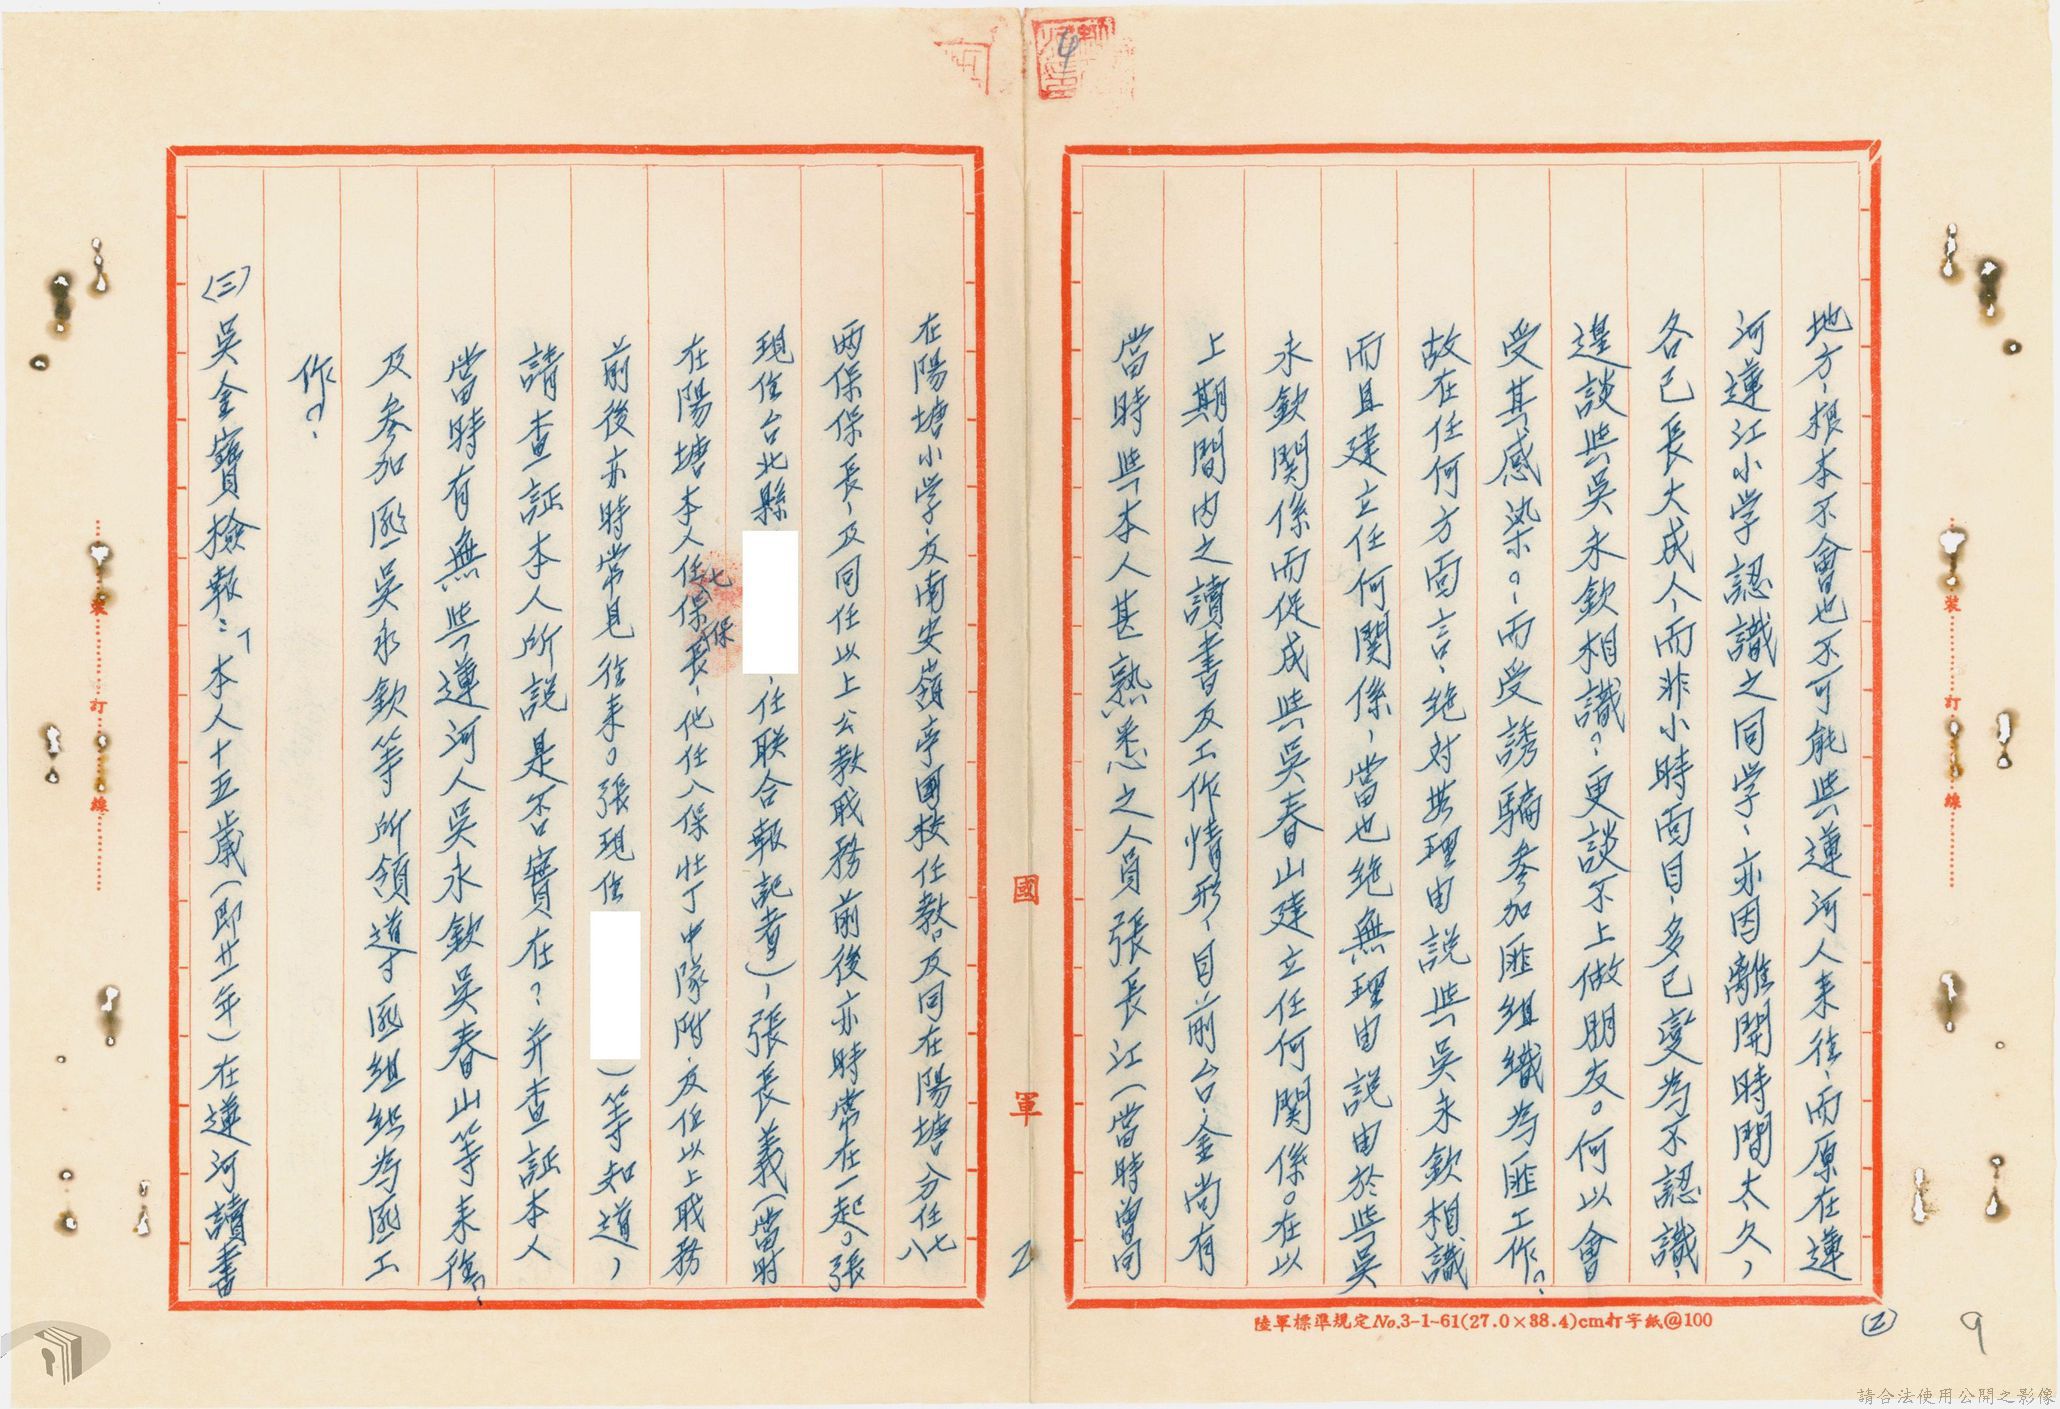 地方，根本不會也不可能與蓮河人來往，而原在蓮
河蓮江小学認識之同学，亦因離開時間太久，
各已長大成人，而非小時面目，多已變為不認識，
遑談與吳永欽相識？更談不上做朋友。何以會
受其感染。而受誘騙參加匪組織為匪工作？
故在任何方面言，絕对無理由說與吳永欽相識
而且建立任何関係，當也絕無理由說由於與吳
永欽関係而促成與吳春山建立任何関係。在以
上期間内之讀書及工作情形，目前台、金尚有
當時與本人甚熟悉之人員張長江（當時曾同
在陽塘小学，及南安嶺亭國校任教及同在陽塘分任七八
兩保保長，及同任以上公教职務前後亦時常在一起。張
現住台北縣，任联合報記者），張長義（當时
在陽塘本人任七保保長，他任八保壯丁中隊附，及任以上职務
前後亦時常見往來。張現住）等知道，
請查証本人所說是否實在？并查証本人
當時有無與蓮河人吳永欽吳春山等來往，
及參加匪吳永欽等所領導匪組織為匪工
作？
（三）吳金寶檢報：「本人十五歲（即廿一年）在蓮河讀書
國軍
2
陸軍標準規定No.3-1-61(27.0×38.4)cm打字紙@100
②
9
4
裝訂線
裝訂線
請合法使用公開之影像